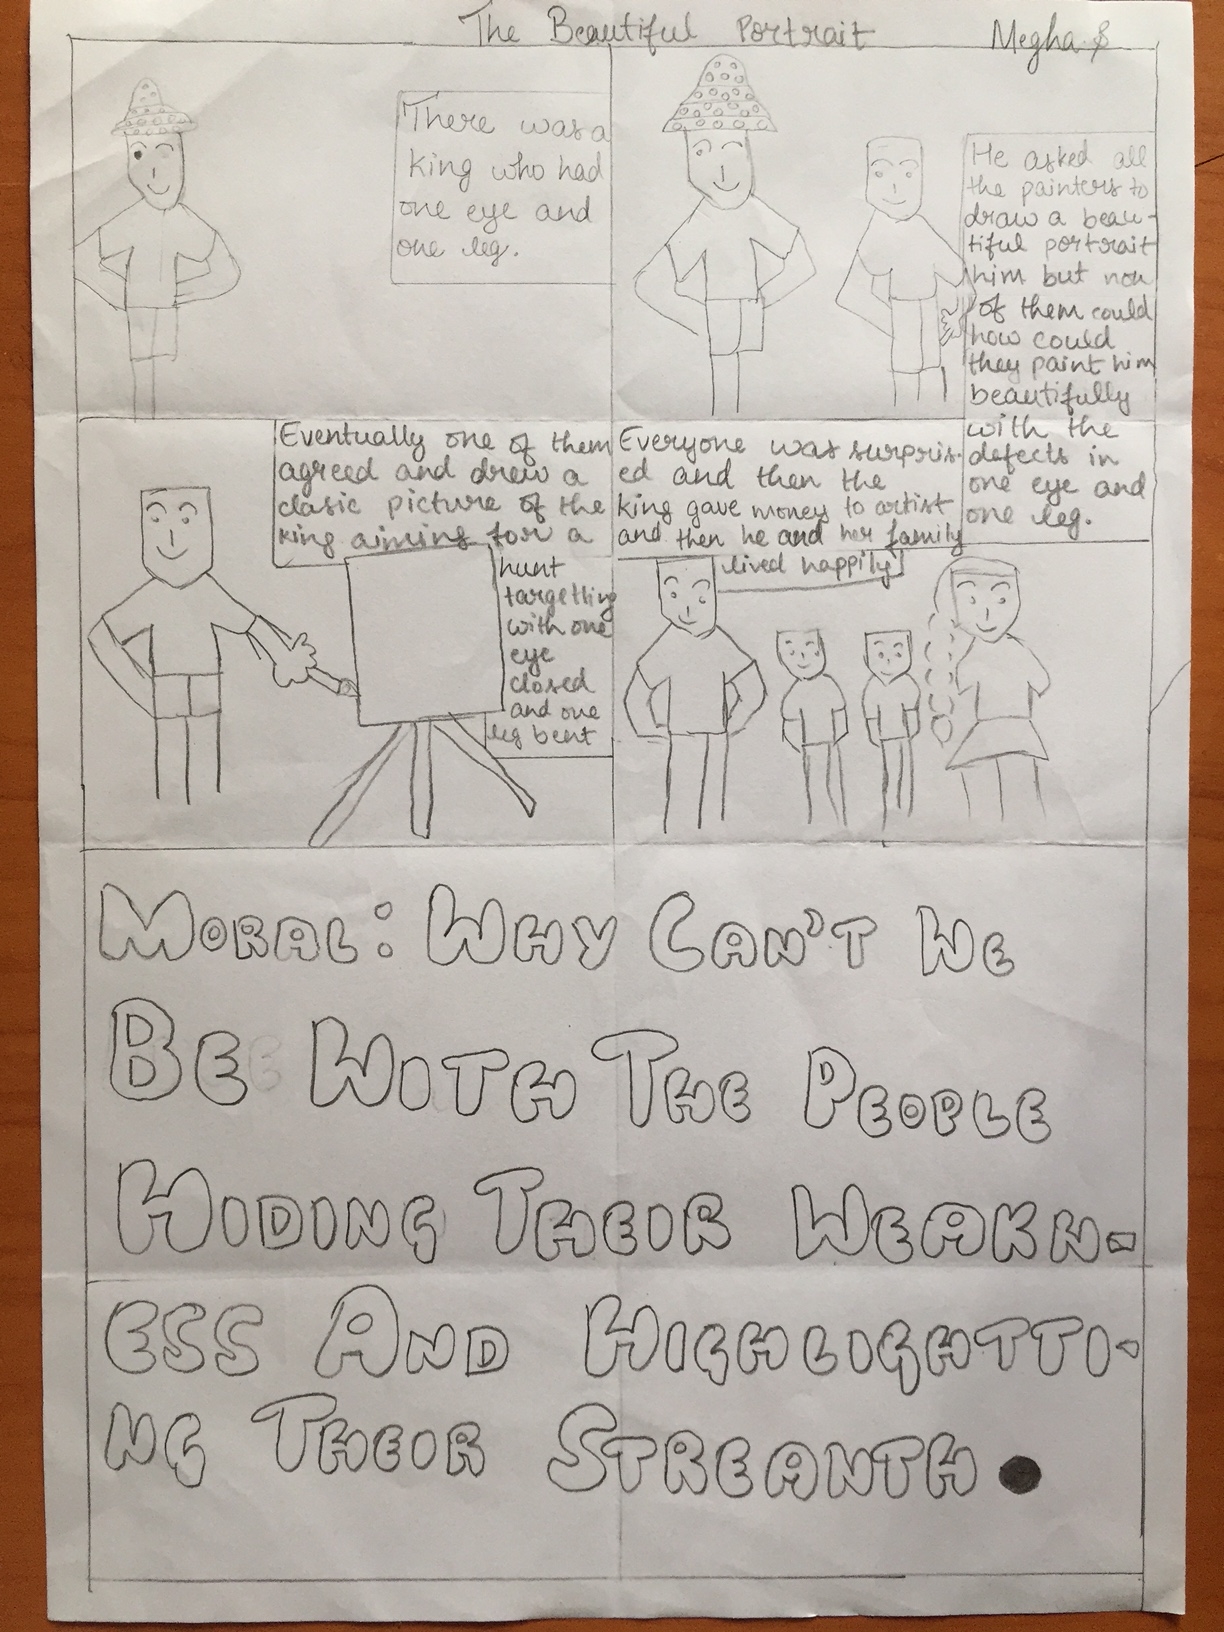 The Beautiful Portrait
Megha $
There was a
king who had
one eye and
one leg.
He asked all
the painters to
draw a beau-
tiful portrait
him but non
of them could
how could
they paint him
beautifully
with the
defects in
one eye and
one leg.
Eventually one of them
agreed and drew a
clasic picture of the
king aiming for a
hunt
targetting
with one
eye
closed
and one
leg bent
Everyone was surpris-
ed and then the
king gave money to artist
and then he and her family
lived happily
MORAL: WHY CAN'T WE
BE WITH THE PEOPLE
HIDING THEIR WEAKN-
ESS AND HIGHLIGHTTI-
NG THEIR STREANTH.